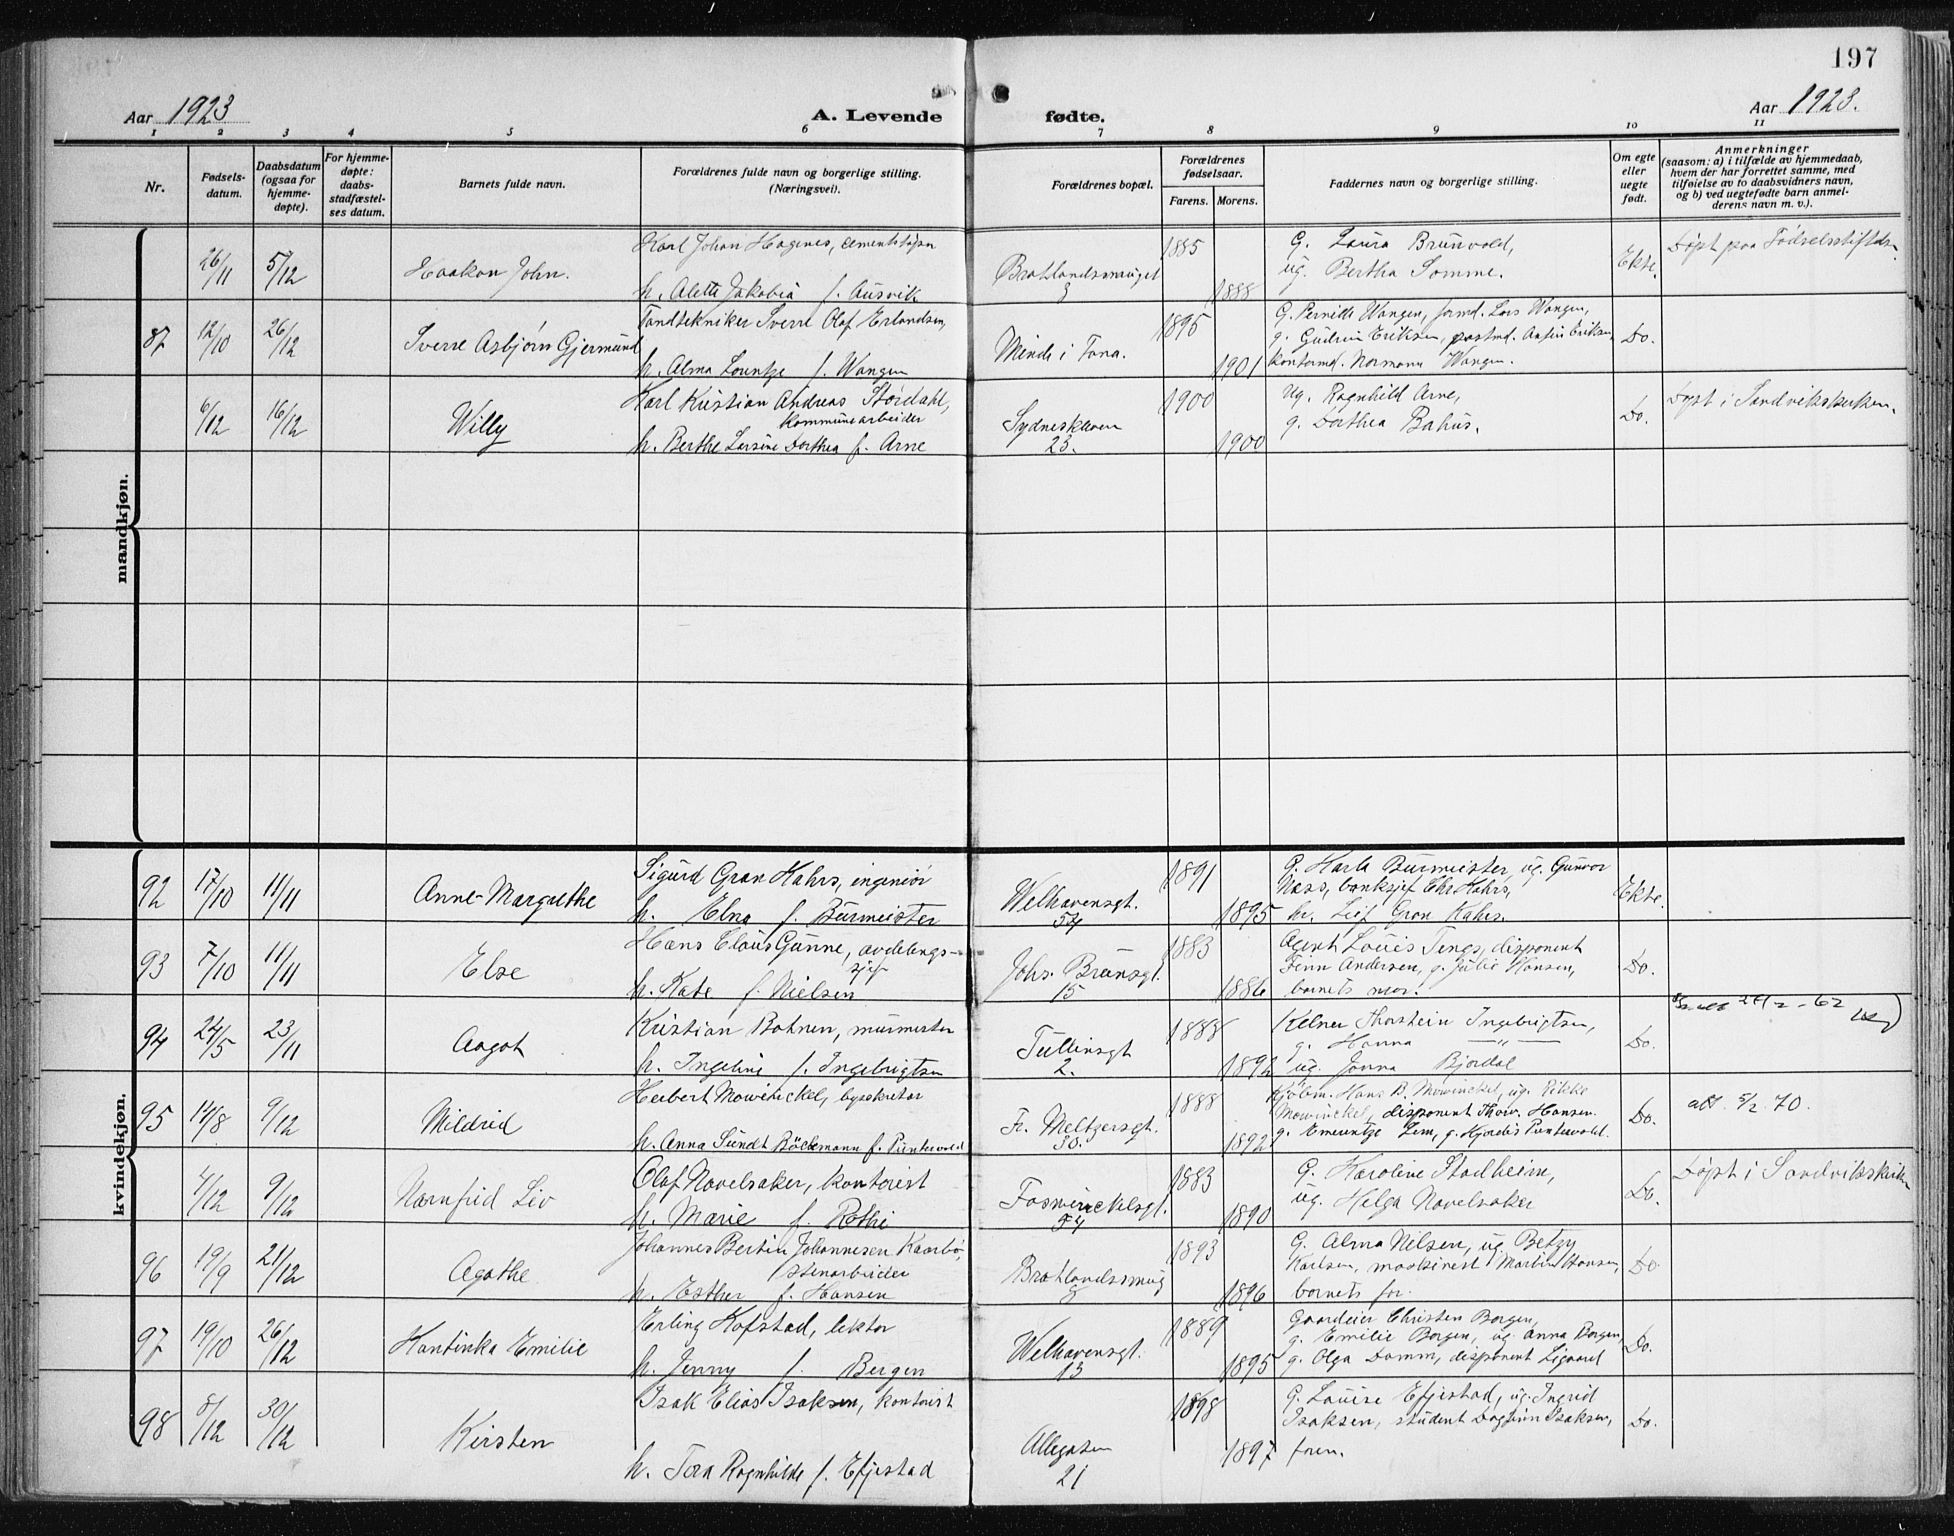 197
Aar 1923
A. Levende
fødte.
Aar 1923.
1 2 3 4 5 6 7 8 9 10 11
Nr.
Fødsels-
datum.
Daabsdatum
(ogsaa for
hjemme-
døpte).
For hjemme-
døpte:
daabs-
stadfæstel-
ses datum.
Barnets fulde navn.
Forældrenes fulde navn og borgerlige stilling.
(Næringsvei).
Forældrenes bopæl.
Forældrenes
fødselsaar.
Farens. Morens.
Faddernes navn og borgerlige stilling.
Om egte
eller
uegte
født.
Anmerkninger
(saasom: a) i tilfælde av hjemmedaab,
hvem der har forrettet samme, med
tilføielse av to daabsvidners navn,
og b) ved uegtefødte barn anmel-
derens navn m. v.).
mandkjøn.
26/11 5/12 Haakon John.
Karl Johan Hagenes,
h. Alette Jakobia f. Ausvik
Bratlandsmuget
3
1885
1888
G. Laura Brunvold,
ug. Bertha Somme.
Ekte.
Døpt paa Fødselsstiftelsen
87 12/10 26/12 Sverre Asbjørn Gjermund
Tandtekniker Sverre Olaf Erlandsen,
h. Alma Lorentze f. Wangen
Minde i Fana.
1895
1901
G. Pernille Wangen, formd. Lars Wangen,
g. Gudrun Eriksen, postmd. Anfin Eriksen,
kontormd. Normann Wangen.
Do.
6/12 16/12 Willy
Karl Kristian Andreas Stordahl,
kommunearbeider
h. Berthe Larsine Dorthea f. Arne
Sydneskleven
23.
1900
1900
Ug. Ragnhild Arne,
g. Dorthea Bahus.
Do.
Døpt i Sandvikskirken.
kvindekjøn.
92 17/10 11/11 Anne-Margrethe
Sigurd Gran Kahrs, ingeniør
h. Elna f. Burmeister
Welhavensgt.
54
1891
1895
G. Harla Burmeister, ug. Gunvor
Næss, banksjef Chr. Kahrs,
hr. Leif Gran Kahrs.
Ekte.
93 7/10 11/11 Else
Hans Claus Gunne, avdelings-
sjef
h. Kate f. Nielsen
Johs. Brunsgt.
15
1883
1886
Agent Louis Tengs, disponent
Finn Andersen, g. Julie Hansen,
barnets mor.
Do.
94 24/5 23/11 Aagot
Kristian Bohnen, murmester
h. Ingeline f. Ingebrigtsen
Tullinsgt
2.
1888
1892
Kelner Thorstein Ingebrigtsen,
g. Hanna — " —
ug. Jonna Bjordal
Do.
95 14/8 9/12 Mildrid
Herbert Mowinckel, bysekretær
h. Anna Sundt Böckmann f. Puntervold
Fr. Meltzersgt.
30.
1888
1892
Kjøbm. Hans B. Mowinckel, ug. Rikke
Mowinckel, disponent Thorv. Hansen.
g. Emerentze Lem, g. Hjørdis Puntervold.
Do.
att. 5/2. 70.
4/12 9/12 Narnfrid Liv
Olaf Navelsaker, kontorist
h. Marie f. Rothe
Fosswinckelsgt.
54
1883
1890
G. Karoline Stadheim,
ug. Helga Navelsaker
Do.
Døpt i Sandvikskirken
96 19/9 21/12 Agathe
Johannes Bertin Johannesen Kaarbø,
stenarbeider
h. Esther f. Hansen
Bratlandssmug
8
1893
1896
G. Alma Nilsen, ug. Betzy
Karlsen, maskinist Martin Hansen,
barnets far.
Do.
97 19/10 26/12 Kantinka Emilie
Erling Kofstad, lektor
h. Jenny f. Bergen
Welhavensgt.
13
1889
1895
Gaardeier Christen Borgen,
g. Emilie Borgen, ug. Anna Borgen,
g. Olga Damm, disponent Sigvard
Do.
98 8/12 30/12 Kirsten
Isak Elias Isaksen, kontorist
h. Tora Ragnhilde f. Efjestad
Allegaten
21
1898
1897
G. Louise Efjestad, ug. Ingrid
Isaksen, student Dagfinn Isaksen,
faren.
Do.